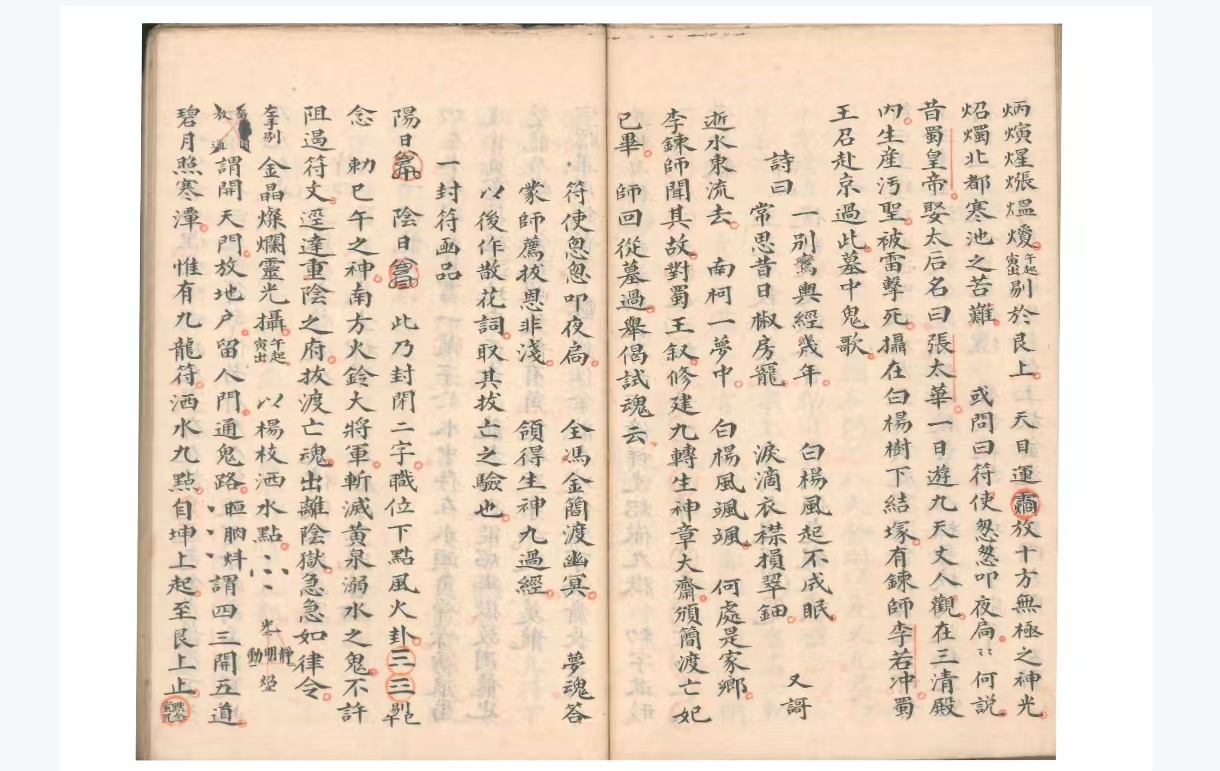 炳煥煋煬熅爕午起寅出剔於艮上 天目運 放十方無極之神光
炤燭北都寒池之苦難 或問曰符使怱怱叩夜扃 何説
昔蜀皇帝娶太后名曰張太華一日遊九天丈人觀在三清殿
內生産汚聖被雷擊死攝在白楊樹下結塚有鍊師李若冲蜀
王召赴京過此墓中鬼歌
詩曰 一別鸞輿經幾年 白楊風起不成眠
常思昔日椒房寵 淚滴衣襟損翠鈿 又謌
逝水東流去 南柯一夢中 白楊風颯颯 何處是家鄉
李鍊師聞其故對蜀王叙修建九轉生神章大齋頒簡渡亡妃
已畢 師回從墓過舉偈試魂云
符使怱怱叩夜扃 全馮金簡渡幽冥 夢魂答
蒙師薦拔恩非淺 領得生神九過經
以後作散花詞取其拔亡之驗也
一封符凾品
陽日 陰日 此乃封閉二字職位下點風火卦三三
念 勅巳午之神南方火鈴大將軍斬滅黃泉溺水之鬼不許
阻過符文逕達重陰之府拔渡亡魂出離陰獄急急如律令
左手剔 金晶燦爛靈光攝午起寅出 以楊枝洒水點 光明動靜
謂開天門放地户留人門通鬼路 謂四三開五道
碧月照寒潭 惟有九龍符洒水九點自坤上起至艮上止